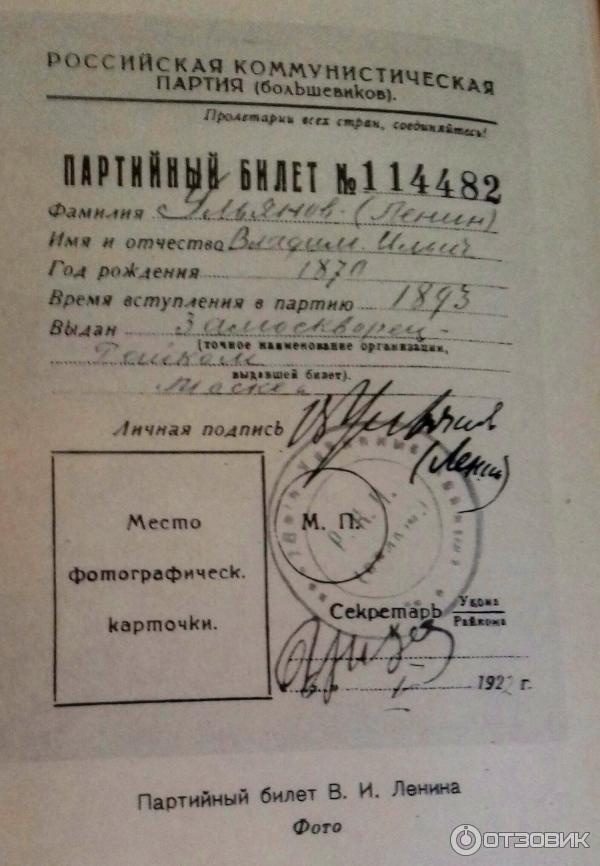 РОССИЙСКАЯ КОММУНИСТИЧЕСКАЯ
ПАРТИЯ (большевиков).
Пролетарии всех стран, соединяйтесь!
ПАРТИЙНЫЙ БИЛЕТ № 114482
Фамилия Ульянов (Ленин)
Имя и отчество Владим. Ильич
Год рождения 1870
Время вступления в партию 1893
Выдан Замоскворец-
(точное наименование организации,
Райком
выдавшей билет).
Москва
Личная подпись В. Ульянов
(Ленин)
Место
фотографическ.
карточки.
М. П.
Р. К. П.
Секретарь Укома
Райкома
1922 г.
Партийный билет В. И. Ленина
Фото
ОТЗОВИК